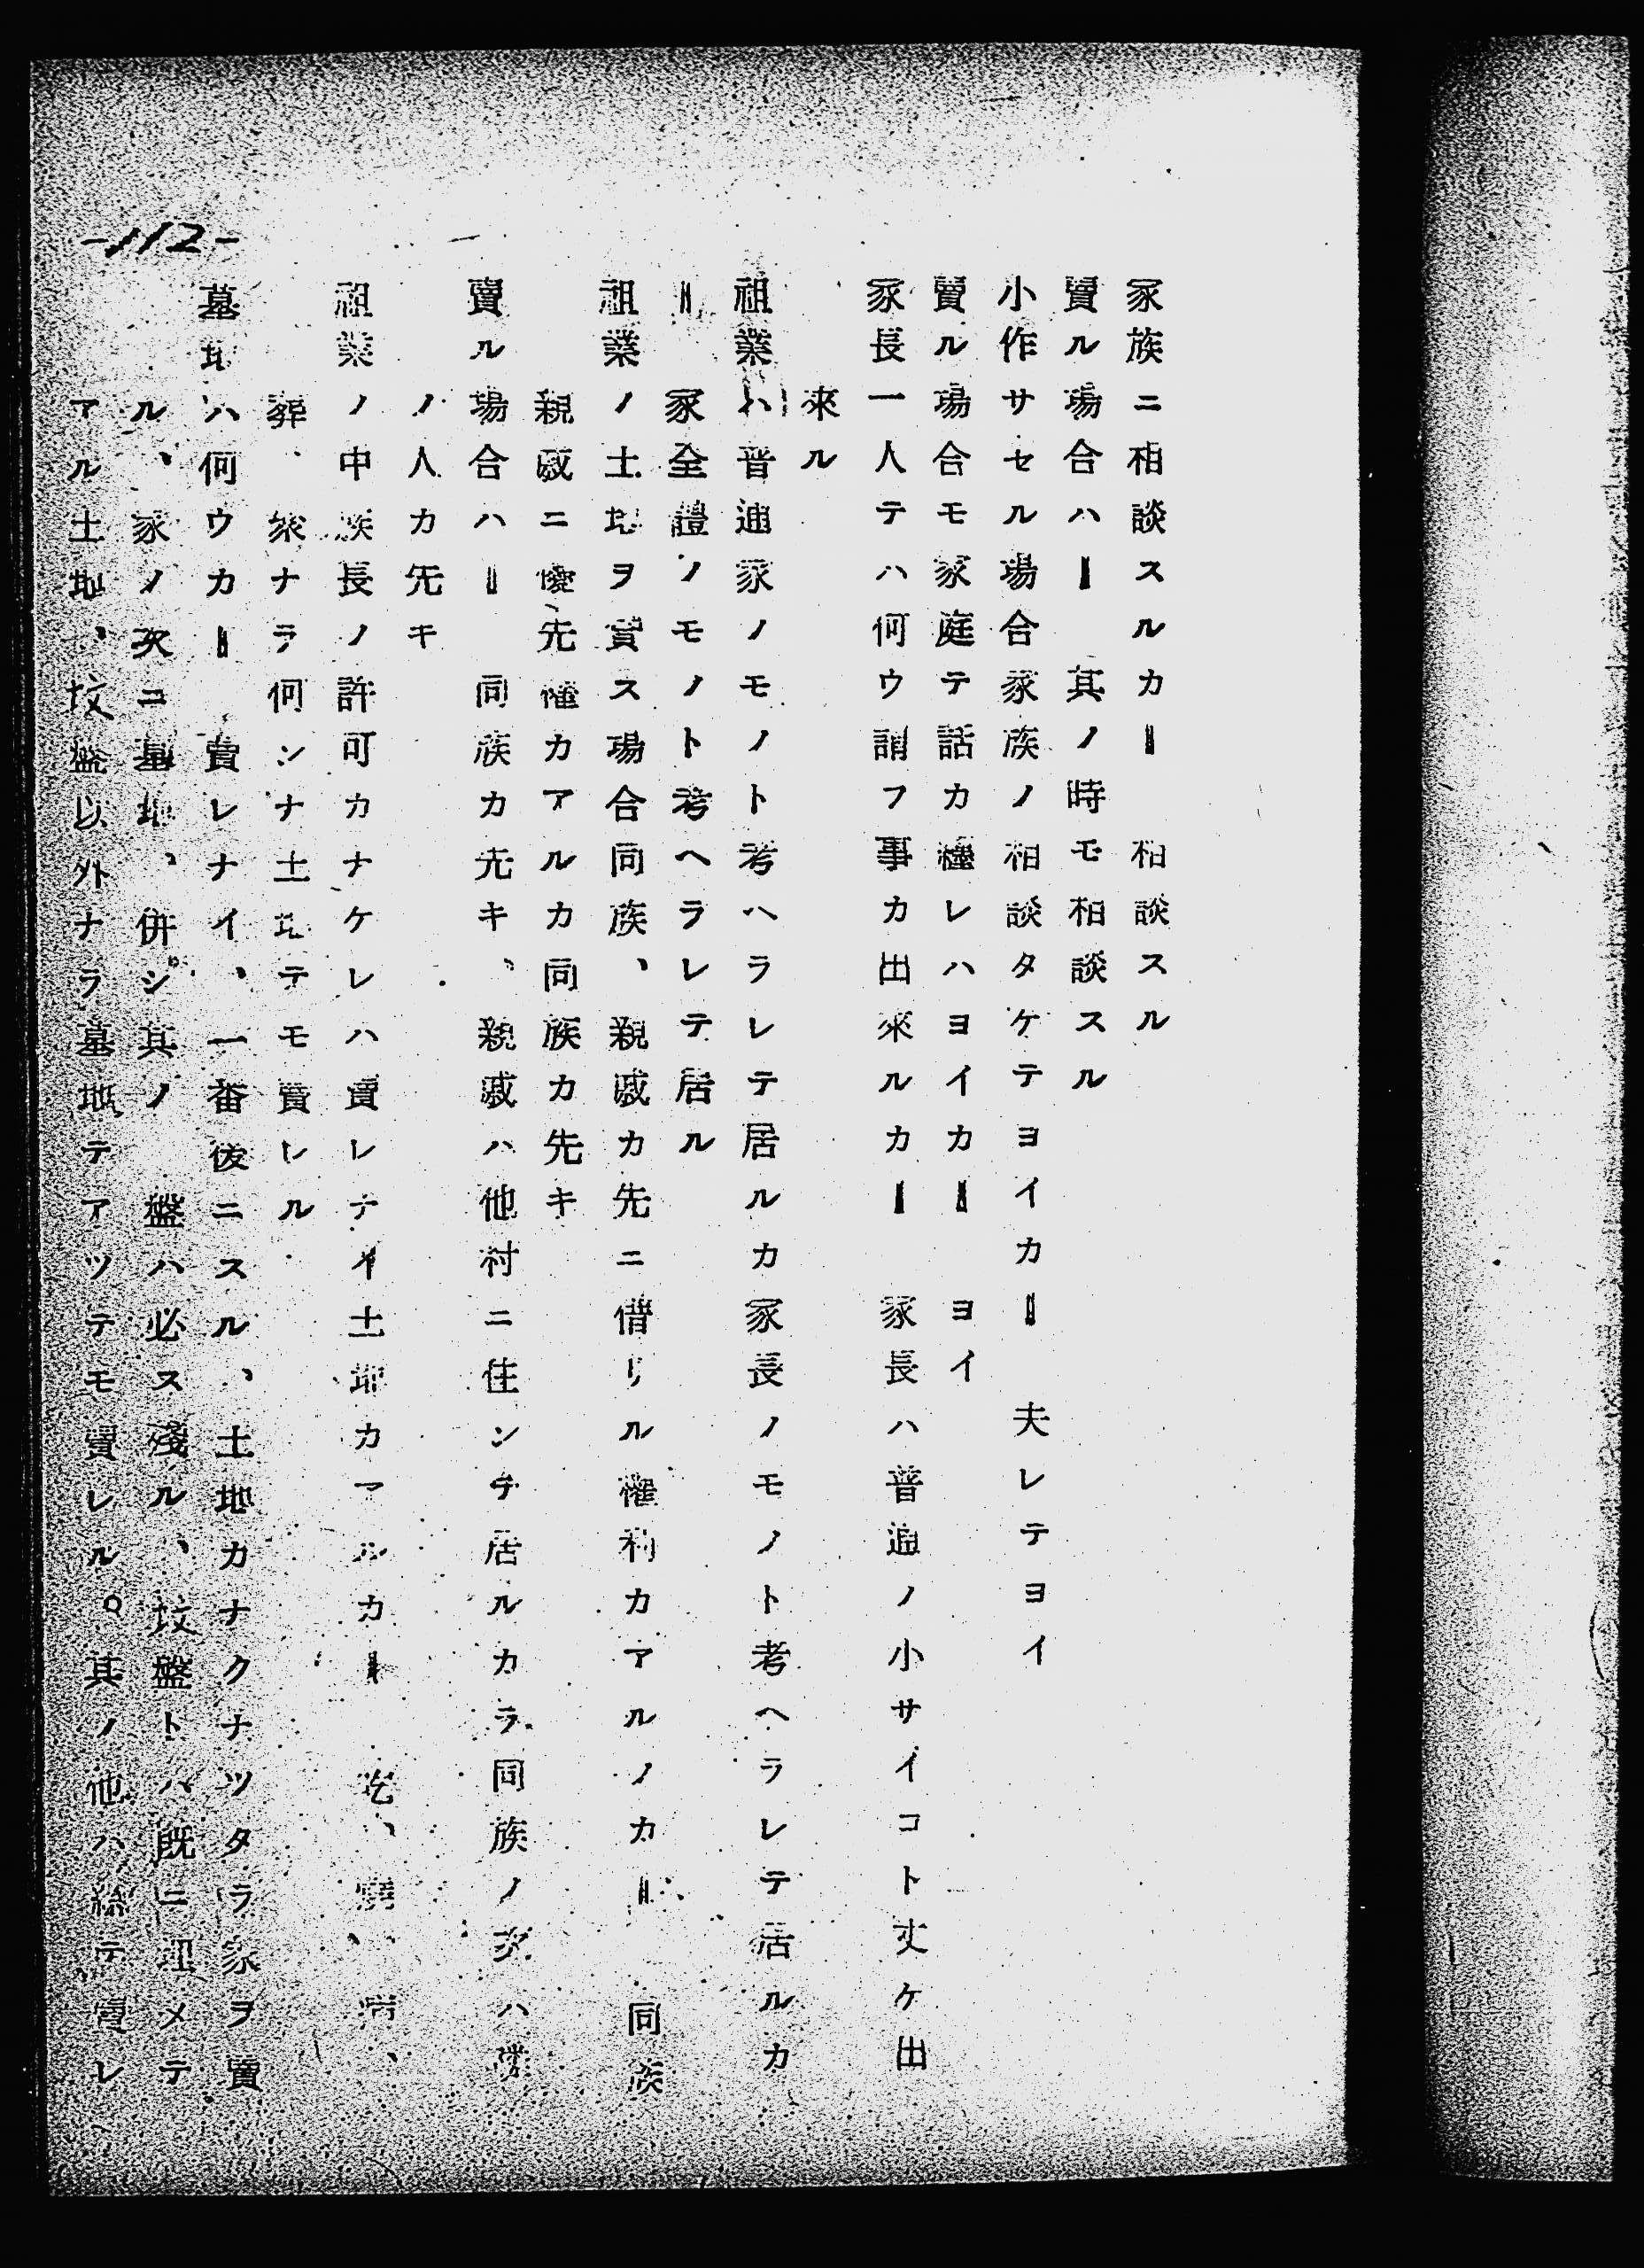 家族ニ相談スルカー 相談スル
賣ル場合ハー 其ノ時モ相談スル
小作サセル場合家族ノ相談タケテヨイカー 夫レテヨイ
賣ル場合モ家庭テ話カ纏レハヨイカー ヨイ
家長一人テハ何ウ謂フ事カ出來ルカー 家長ハ普通ノ小サイコト丈ケ出
來ル
祖業ハ普通家ノモノト考ハラレテ居ルカ家長ノモノト考ヘラレテ居ルカ
ー 家全體ノモノト考ヘラレテ居ル
祖業ノ土地ヲ賣ス場合同族、親戚カ先ニ借リル權利カアルノカー 同族
親戚ニ優先權カアルカ同族カ先キ
賣ル場合ハー 同族カ先キ、親戚ハ他村ニ住ンテ居ルカラ同族ノ次ハ
ノ人カ先キ
祖業ノ中族長ノ許可カナケレハ賣レナイ土地カアルカー
葬、 ナラ何ンナ土地テモ賣レル
墓地ハ何ウカー 賣レナイ、一番後ニスル、土地カナクナツタラ家ヲ賣
ル、家ノ次ニ墓地、併シ其ノ 盤ハ必ス殘ル、坟盤トハ既ニ埋メテ
アル土地、坟盤以外ナラ墓地テアツテモ賣レル。其ノ他ハ總テ賣レ
-112-